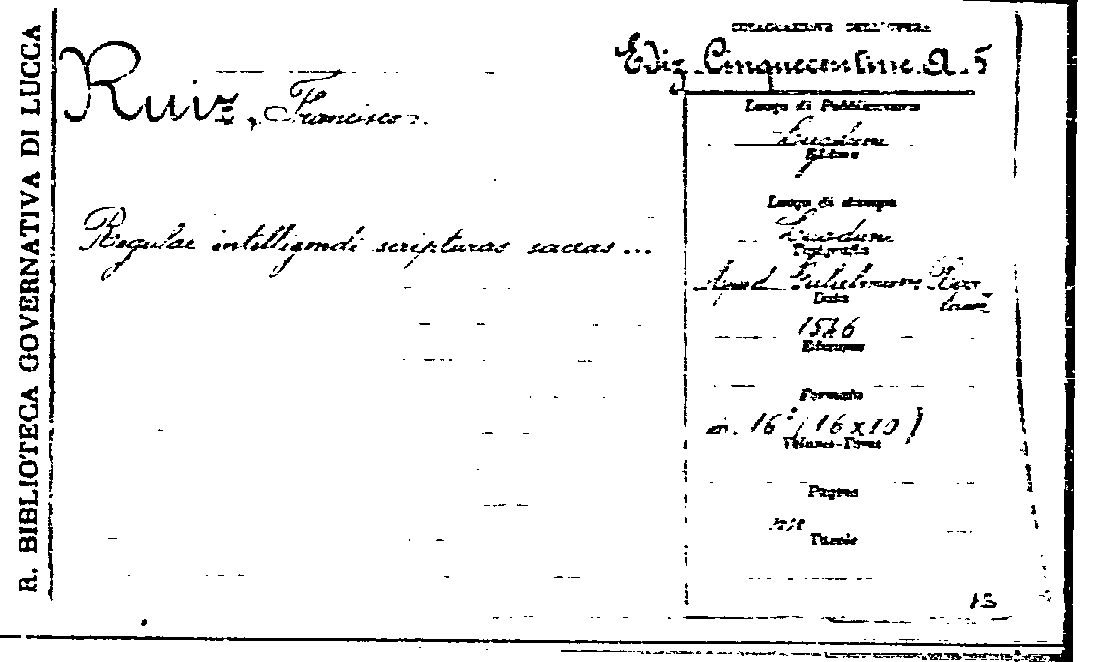 R. BIBLIOTECA GOVERNATIVA DI LUCCA
COLLOCAZIONE DELL'OPERA
Ediz. Cinquecentine. A. 5
Ruiz, Francisco.
Regulae intelligendi scripturas sacras ...
Luogo di Pubblicazione
Lugduni
Editore
Luogo di stampa
Lugduni
Tipografia
Apud Gulielmum
Data
1546
Edizione
Formato
in. 16° (16x10)
Volumi-Tomi
Pagine
Tavole
13